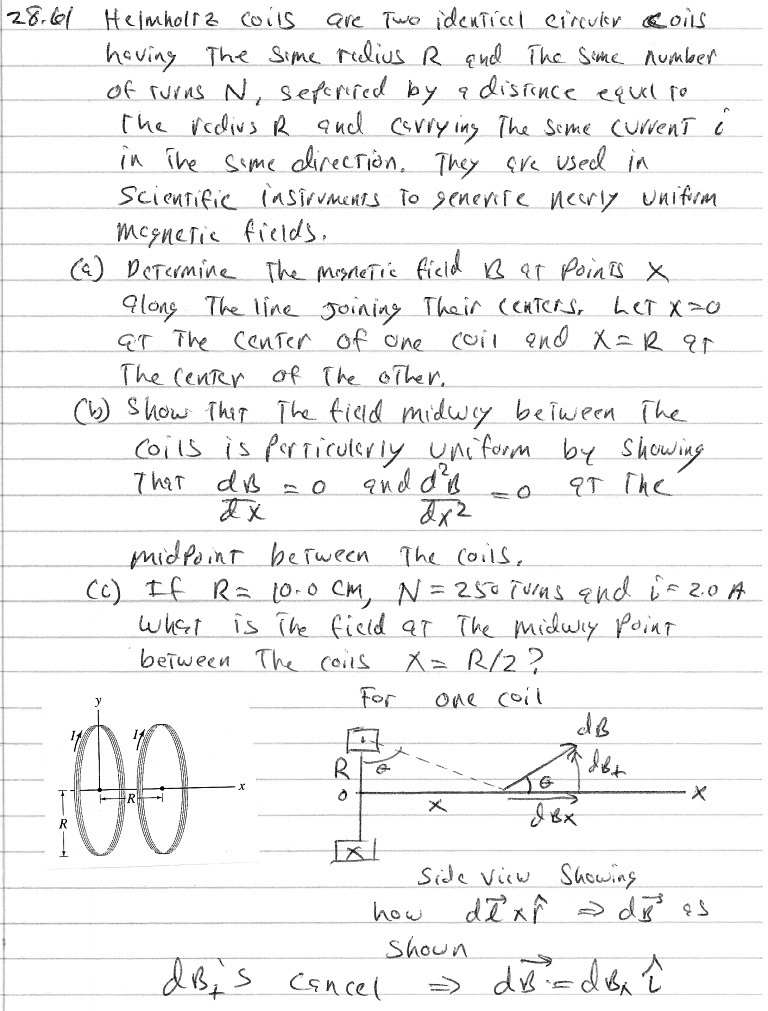 28.61 Helmholtz coils are Two identical circular coils
having The same radius R and The same number
of turns N, separated by a distance equal to
the radius R and carrying The same current i
in The same direction. They are used in
Scientific instruments To generate nearly uniform
magnetic fields.
(a) Determine The magnetic field B at points X
along The line joining Their centers. Let X=0
at The center of one coil and X=R at
The center of The other.
(b) Show That The field midway between The
coils is particularly uniform by showing
That dB/dx = 0 and d²B/dx² = 0 at The
midpoint between The coils.
(c) If R = 10.0 cm, N = 250 Turns and i = 2.0 A
What is The field at The midway point
between The coils X = R/2?
For one coil
y
I
I
R
x
R
dB
R
θ
θ
dB⊥
0
x
dBx
X
x
Side view Showing
how dl⃗ x r̂ ⇒ dB⃗ as
shown
dB⊥'s cancel ⇒ dB⃗ = dBx î